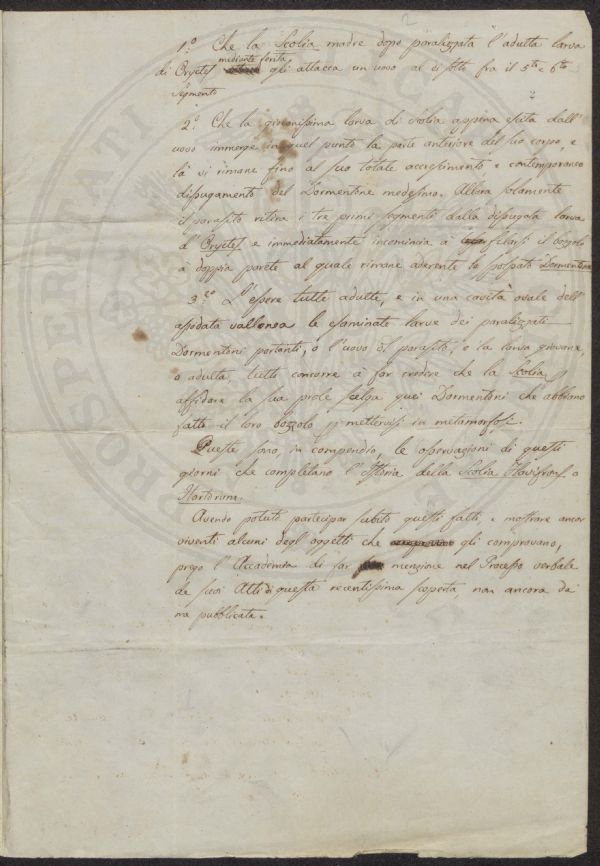 1.° Che la Scolia madre dopo paralizzata l'adulta larva
mediante ferita
di Oryctes gli attacca un uovo al di sotto fra il 5to e 6to
segmento
2.° Che la giovanissima larva di Scolia appena escita dall'
uovo immerge in quel punto la parte anteriore del suo corpo, e
là vi rimane fino al suo totale accrescimento e contemporaneo
dissugamento del Dormentone medesimo. Allora solamente
il parasito ritira i tre primi segmenti dalla dissugata larva
d'Oryctes e immediatamente incomincia a filarsi il bozzolo
a doppia parete al quale rimane aderente lo spolpato Dormentone
3.zo L'essere tutte adulte, e in una cavità ovale dell'
assodata vallonea le esaminate larve dei paralizzati
Dormentoni portanti, o l'uovo del parasito, o la larva giovane,
o adulta, tutti concorre a far credere che la Scolia
affidare la sua prole scelga quei Dormentoni che abbiano
fatto il loro bozzolo p. mettervisi in metamorfosi.
Queste sono, in compendio, le osservazioni di questi
giorni che completano l'Istoria della Scolia Flavifrons o
Hortorum.
Avendo potuto partecipar subito questi fatti, e mostrare ancor
viventi alcuni degl'oggetti che gli comprovano,
prego l'Accademia di far menzione nel Processo verbale
de suoi Atti di questa recentissima scoperta, non ancora da
ma pubblicata.